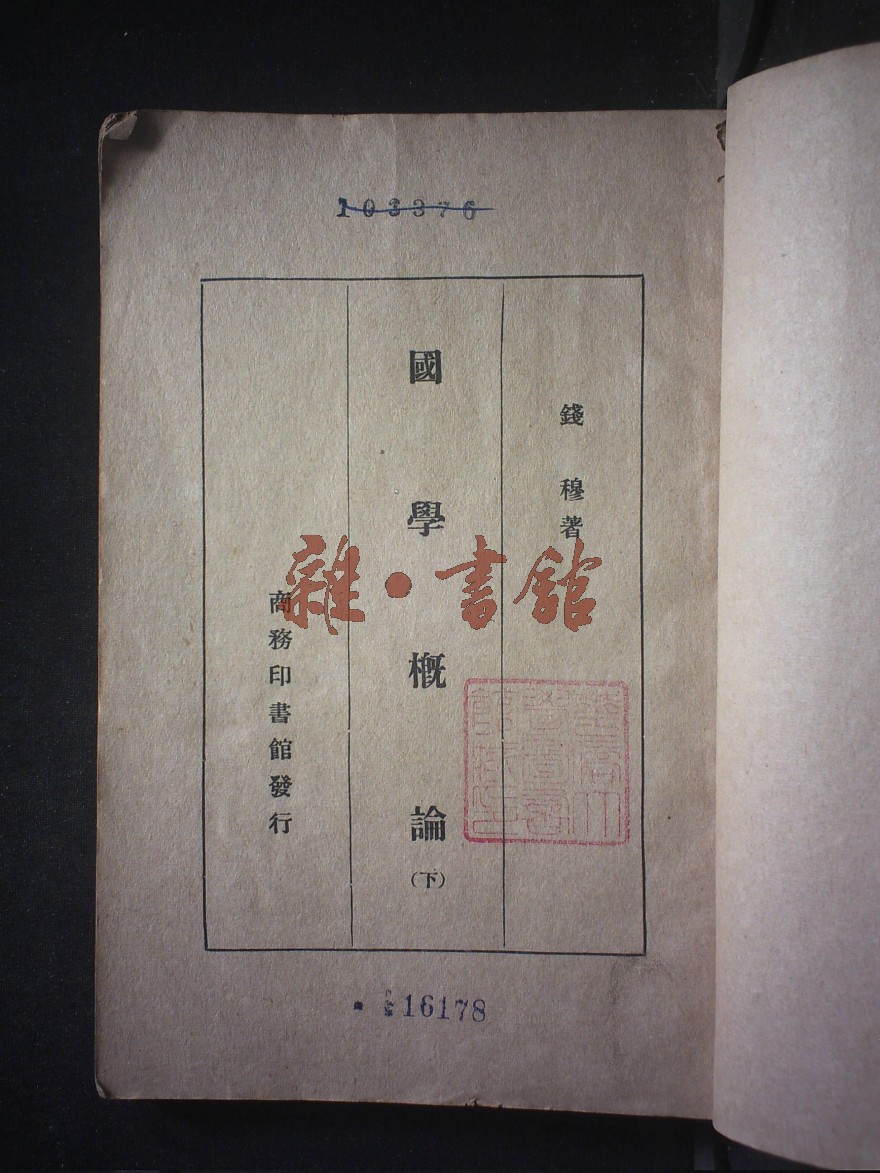 103376
錢穆著
國學槪論
(下)
商務印書館發行
雜·書館
16178